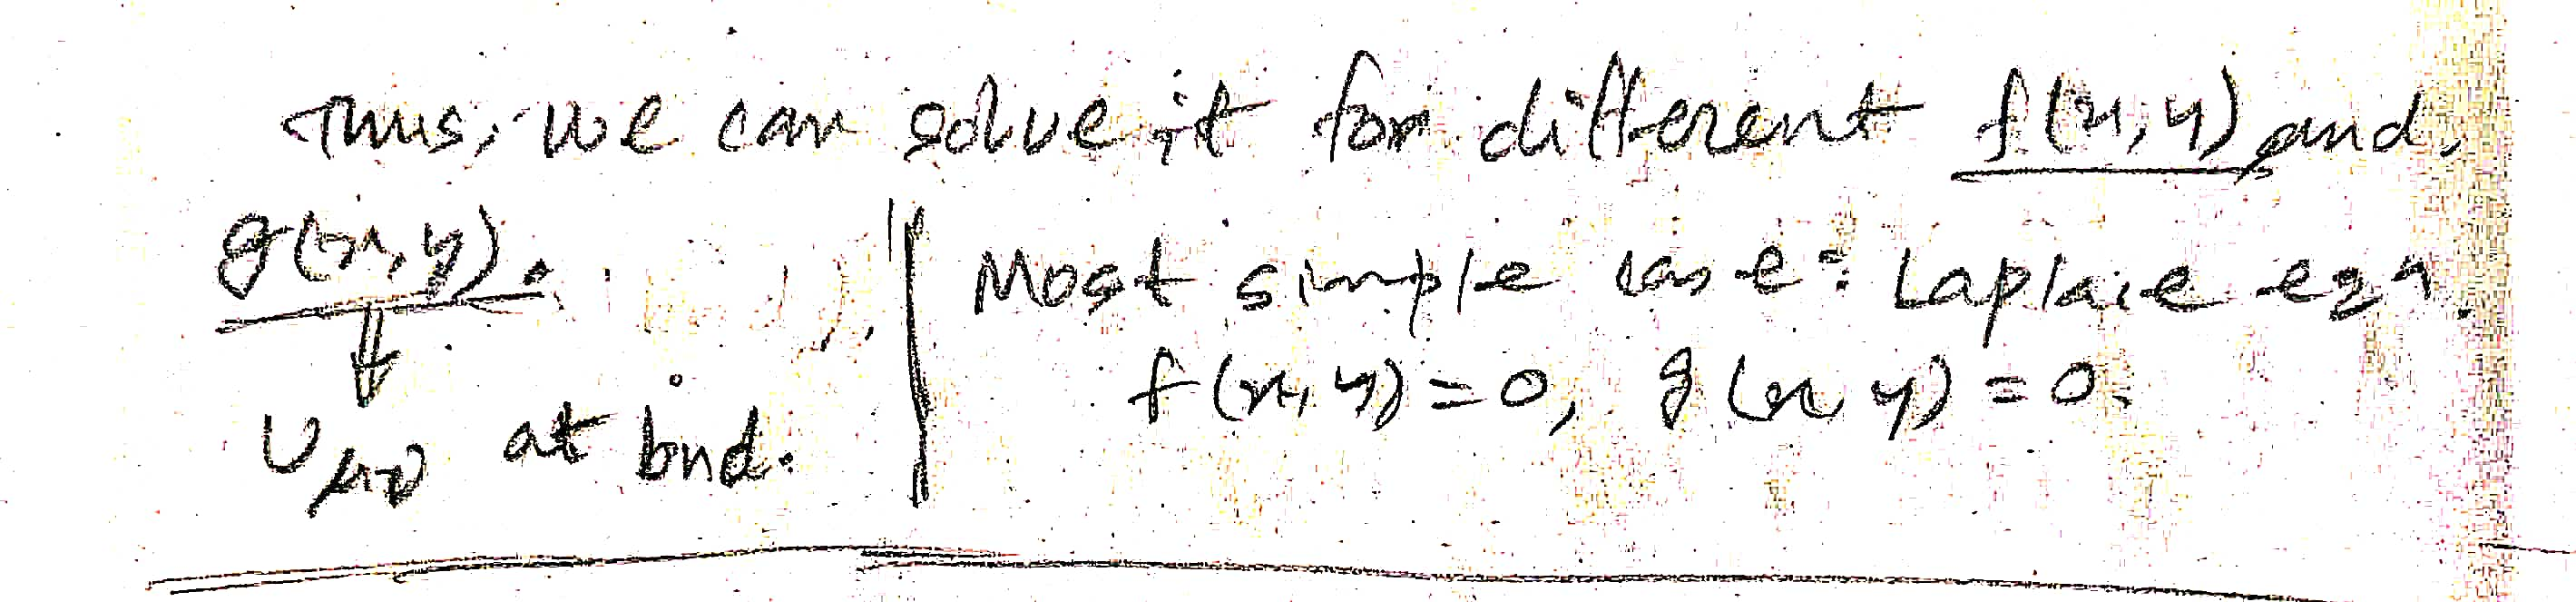 Thus, we can solve it for different f(x,y) and
g(x,y).
at bnd.
Most simple case: Laplace eqn.
f(x,y)=0, g(x,y)=0.